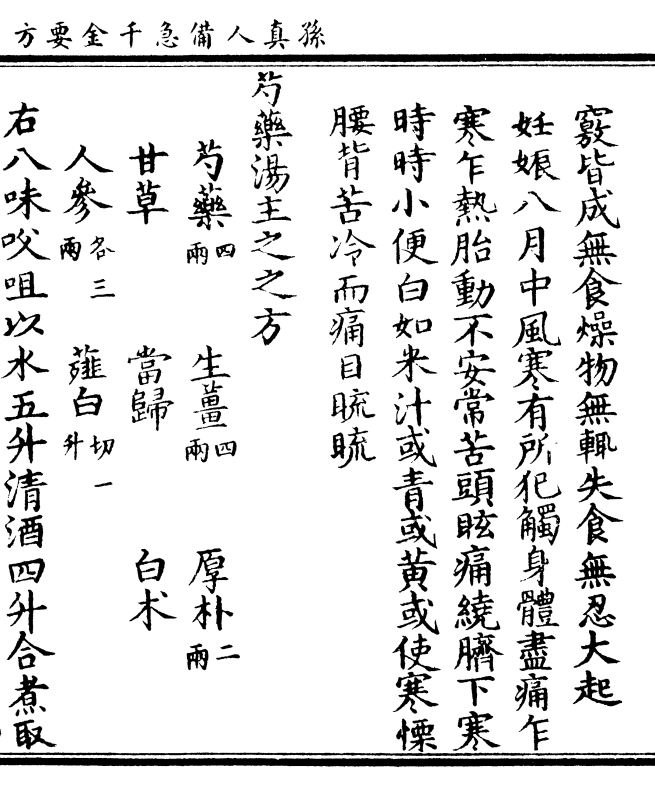 孫真人備急千金要方
竅皆成無食燥物無輒失食無忍大起
妊娠八月中風寒有所犯觸身體盡痛乍
寒乍熱胎動不安常苦頭眩痛繞臍下寒
時時小便白如米汁或青或黃或使寒慄
腰背苦冷而痛目䀮䀮
芍藥湯主之之方
芍藥四兩 生薑四兩 厚朴二兩
甘草 當歸 白朮
人參各三兩 薤白切一升
右八味㕮咀以水五升清酒四升合煮取